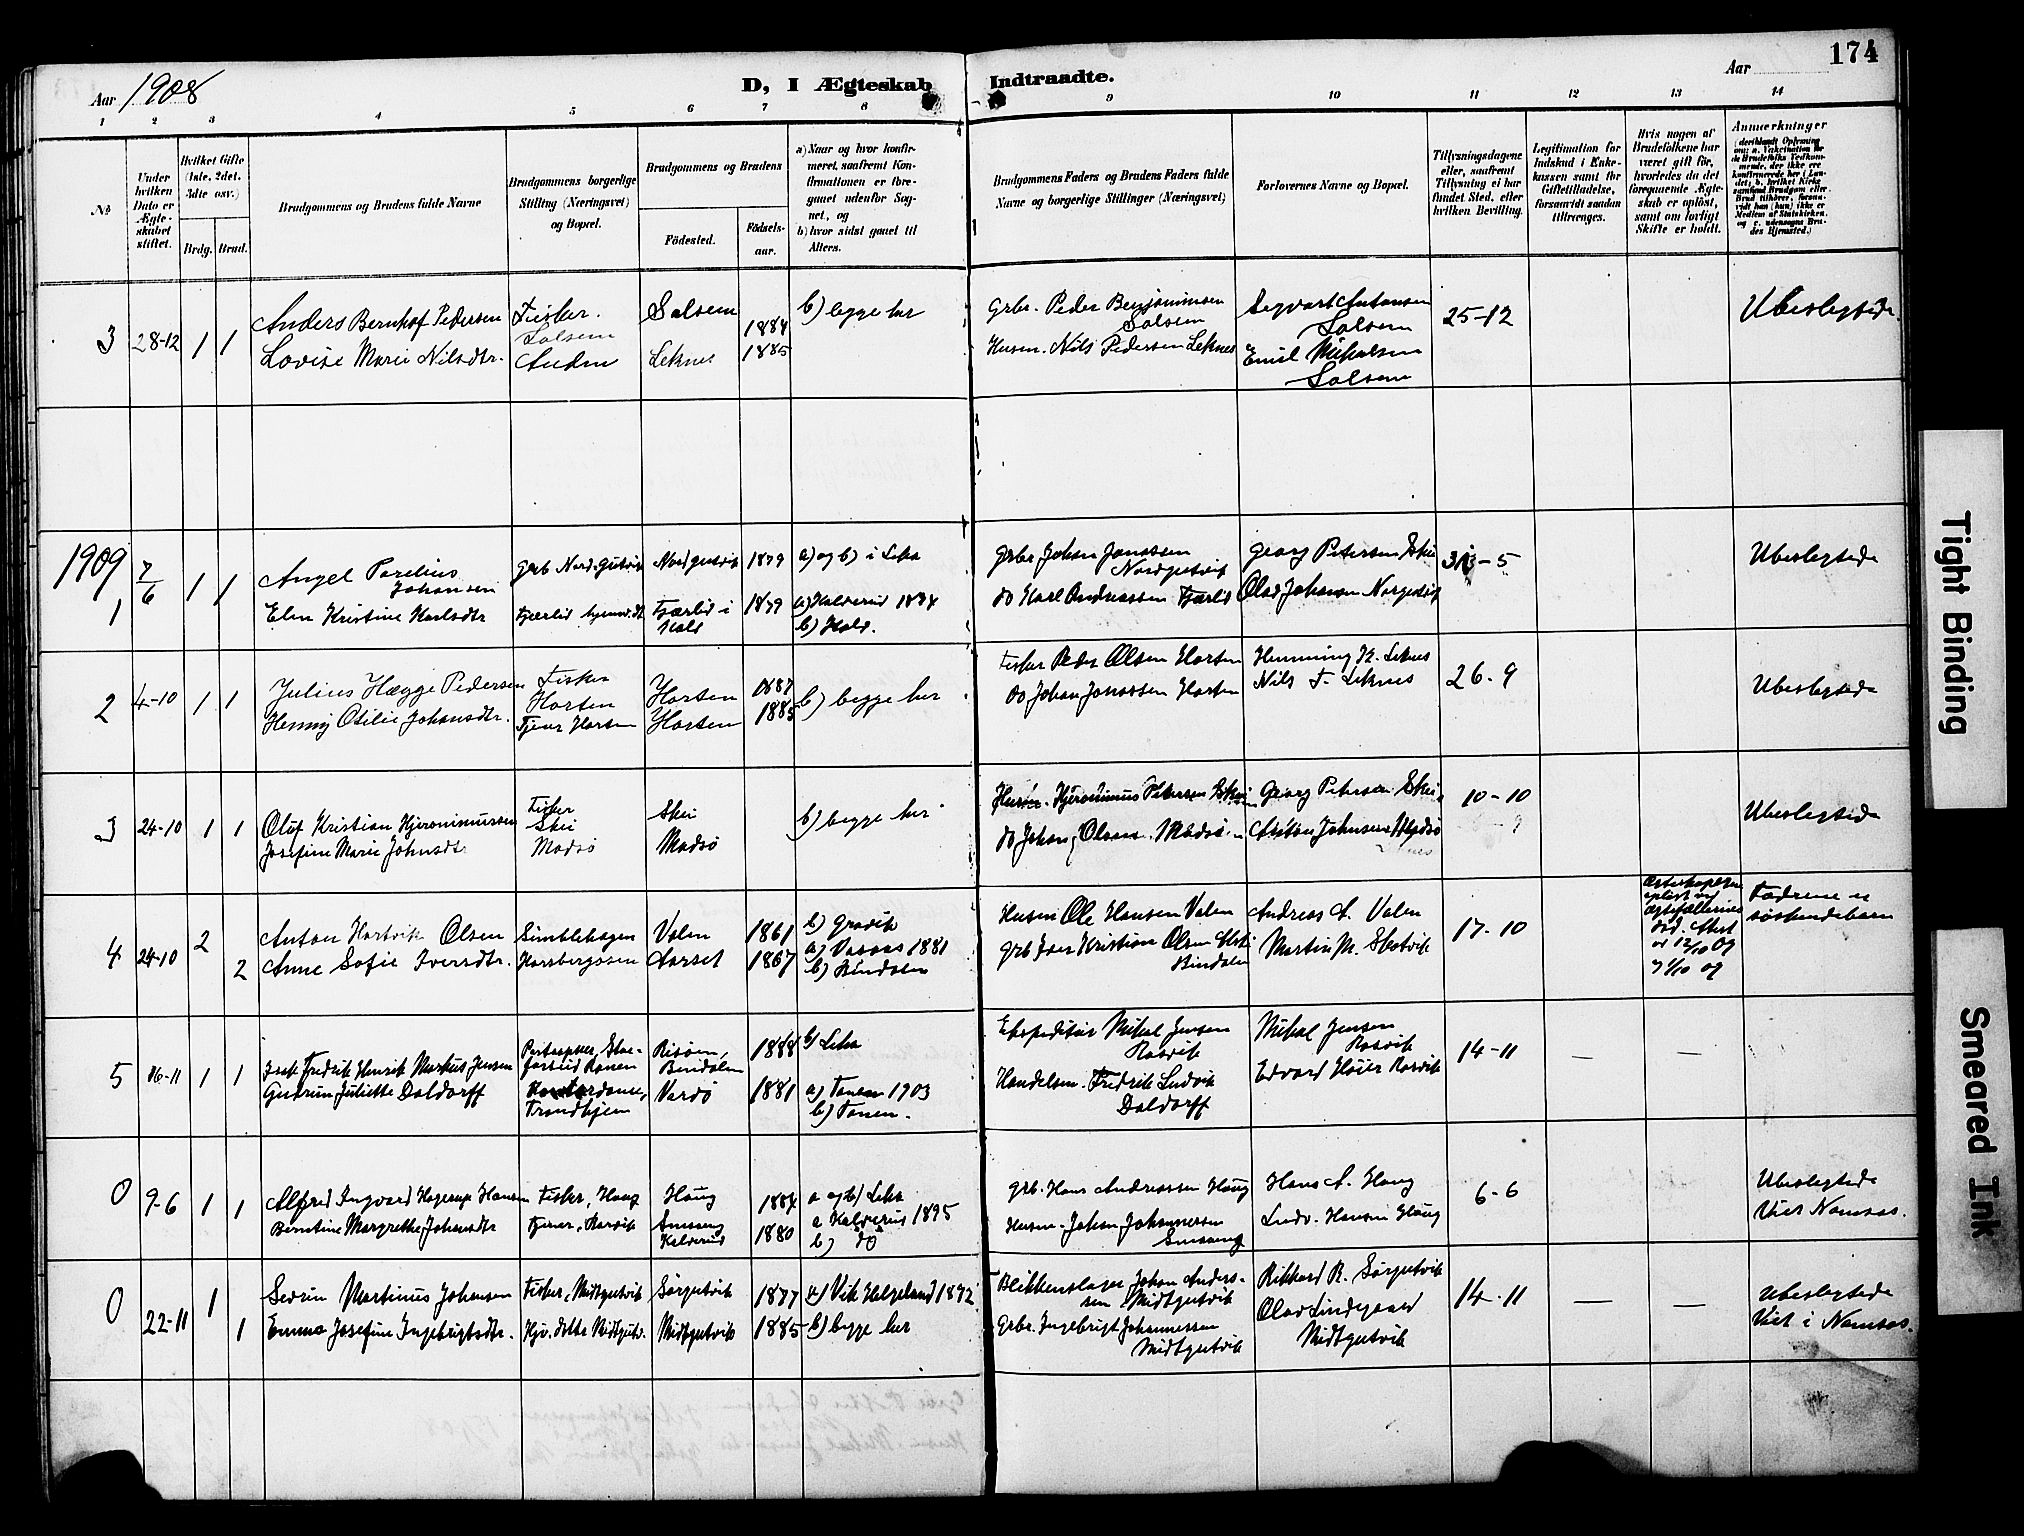 174
Aar 1908
D, I Ægteskab Indtraadte.
Aar
1 2 3 4 5 6 7 8 9 10 11 12 13 14
No
Under hvilken Dato er Ægteskabet stiftet.
Hvilket Gifte (1ste, 2det, 3dte osv.)
Brdg. Brud.
Brudgommens og Brudens fulde Navne
Brudgommens borgerlige Stilling (Næringsvei) og Bopæl.
Brudgommens og Brudens
Födested.
Födselsaar.
a) Naar og hvor konfirmeret, saafremt Konfirmationen er foregaaet udenfor Sognet, og
b) hvor sidst gaaet til Alters.
Brudgommens Faders og Brudens Faders fulde Navne og borgerlige Stillinger (Næringsvei)
Forlovernes Navne og Bopæl.
Tillysningsdagene eller, saafremt Tillysning ei har fundet Sted, efter hvilken Bevilling.
Legitimation for Indskud i Enkekassen samt for Giftetilladelse, forsaavidt saadan tiltrænges.
Hvis nogen af Brudefolkene har været gift för, hvorledes da det foregaaende Ægteskab er oplöst, samt om lovligt Skifte er holdt.
Anmærkninger
3 28-12 1 1
Anders Bernhof Pedersen
Lovise Marie Nilsdtr.
Fisker.
Solsem
Solsem 1884
Leknes 1885
b) begge her
Grbr. Peder Benjaminsen
Solsem
Husm. Nils Pedersen Leknes
Segvart Antonsen
Solsem
Emil Mikalsen
Solsem
25-12
Ubeslegtede
1909
1 7/6 1 1
Angel Parelius
Johansen
Elen Kristine Karlsdtr
Grb Nordgutvik
Nordgutvik 1879
Fjærlid i 1879
a) og b) i Leka
a) Kolvereid 1894
Grbr Johan Jonassen
Nordgutvik
do Karl Andreassen Fjærlid
Georg Petersen Skei
Olav Johansen Norgutvik
Ubeslegtede
2 4-10 1 1
Julius Hægge Pedersen
Henny Otilie Johansdtr.
Fisker
Horten
Tjener Horten
Horten 1887
Horten 1885
b) begge her
Fisker Peder Olsen Horten
do Johan Jonassen Horten
Henning K. Leknes
Nils F. Leknes
26-9
Ubeslegtede
3 24-10 1 1
Oluf Kristian Hjeronimussen
Josefine Marie Johnsdtr
Fisker
Skei
Madsö
Skei
Madsö
b) begge her
Hjeronimus Petersen Skei
do Johan Olsen Madsö
Georg Petersen Skei
Anton Johnsen Madsö
10-10
Ubeslegtede
4 24-10 2 2
Anton Hartvik Olsen
Anne Sofie Iversdtr.
Simlehagen
Horsbergsosen
Valen 1861
Aarset 1867
b) Gravik
b) Bindalen
Husm Ole Hansen Valen
Grb Iver Kristian Olsen
Bindalen
Andreas A. Valen
Martin M. Skotvik
17-10
Fædrene er
söskendebarn
5 16-11 1 1
Isak Fredrik Henrik Markus Jensen
Gudrun Juliette Doldorff
Trondhjem
Risöen, 1888
Bindalen
Vardö 1881
b) Leka
a) Tanen 1903
b) Tanen.
Ekspeditör Mikal Jensen
Rosvik
Handelsm. Fredrik Ludvik
Doldorff
Mikal Jensen
Rosvik
Edvard Höier Rosvik
14-11 — —
0 9-6 1 1
Alfred Ingvard Hagerup Hansen
Berntine Margrethe Johansdtr
Fisker, Haug
Tjener, Rørvik
Haug 1884
Kolvereid 1880
a og b) Leka
a Kolvereid 1895
b) do
Grb. Hans Andreassen Haug
Husm. Johan Johannessen
Hans A. Haug
Ludv. Hansen Haug
6-6
Ubeslegtede
Viet Namsos.
0 22-11 1 1
Severin Martinus Johansen
Emma Josefine Ingebrigtsdtr.
Fisker, Midtgutvik
Sörgutvik 1877
Midtgutvik 1885
a) Vik Helgeland 1892
b) begge her
Blikkenslager Johan Andersen
Midtgutvik
Grbr. Ingebrigt Johannessen
Midtgutvik
Rikhard R. Sörgutvik
Olav Lindgaard
Midtgutvik
14-11 — —
Ubeslegtede
Viet i Namsos.
Tight Binding
Smeared Ink